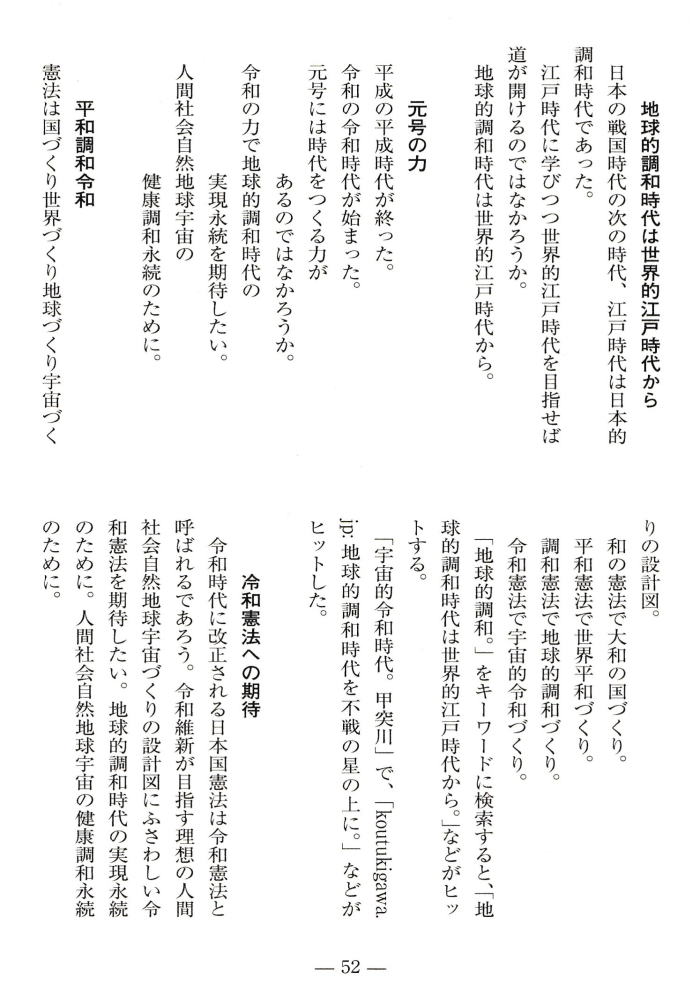 地球的調和時代は世界的江戸時代から
日本の戦国時代の次の時代、江戸時代は日本的
調和時代であった。
江戸時代に学びつつ世界的江戸時代を目指せば
道が開けるのではなかろうか。
地球的調和時代は世界的江戸時代から。
元号の力
平成の平成時代が終った。
令和の令和時代が始まった。
元号には時代をつくる力が
あるのではなかろうか。
令和の力で地球的調和時代の
実現永続を期待したい。
人間社会自然地球宇宙の
健康調和永続のために。
平和調和令和
憲法は国づくり世界づくり地球づくり宇宙づく
りの設計図。
和の憲法で大和の国づくり。
平和憲法で世界平和づくり。
調和憲法で地球的調和づくり。
令和憲法で宇宙的令和づくり。
「地球的調和。」をキーワードに検索すると、「地
球的調和時代は世界的江戸時代から。」などがヒッ
トする。
「宇宙的令和時代。甲突川」で、「koutukigawa.
jp: 地球的調和時代を不戦の星の上に。」などが
ヒットした。
冷和憲法への期待
令和時代に改正される日本国憲法は令和憲法と
呼ばれるであろう。令和維新が目指す理想の人間
社会自然地球宇宙づくりの設計図にふさわしい令
和憲法を期待したい。地球的調和時代の実現永続
のために。人間社会自然地球宇宙の健康調和永続
のために。
― 52 ―